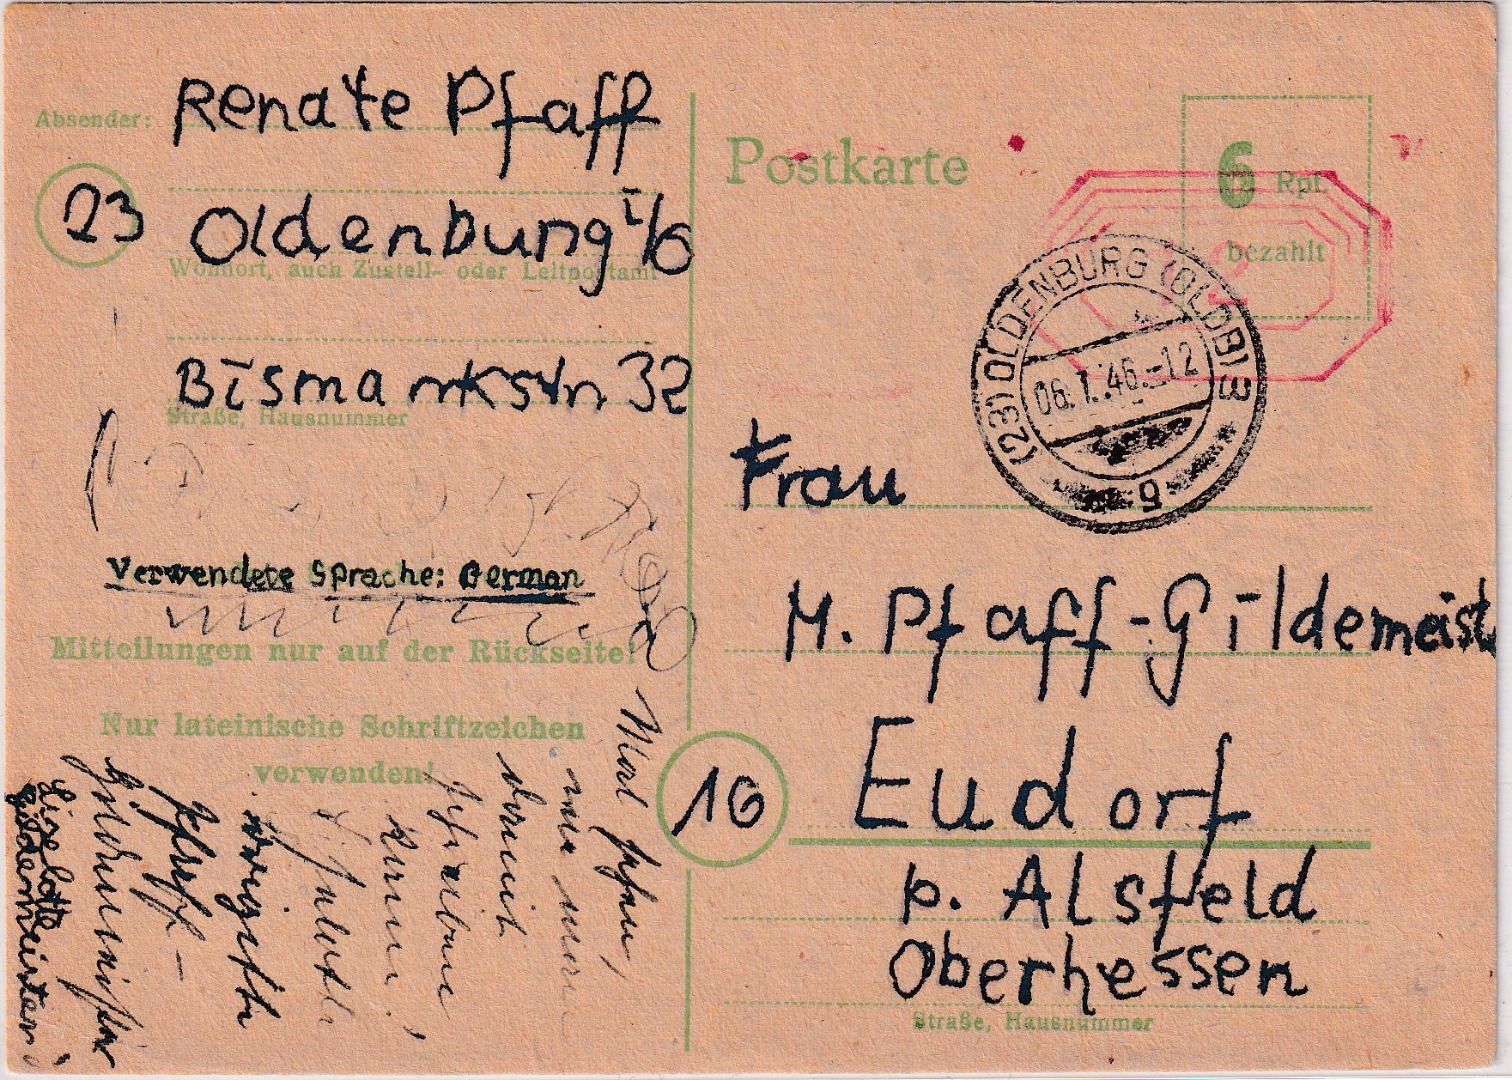 Absender: Renate Pfaff
23 Oldenburg i/O
Wohnort, auch Zustell- oder Leitpostamt
Bismarkstr 32
Straße, Hausnummer
Verwendete Sprache: German
Mitteilungen nur auf der Rückseite!
Nur lateinische Schriftzeichen
verwenden!
Mal sehen,
wie man
damit
schreiben
kann!
Liselotte
Gildemeister
Postkarte
6 Rpf.
bezahlt
(23) OLDENBURG (OLDB) 3
06.1.46.-12
g
Frau
M. Pfaff-Gildemeist
16 Eudorf
p. Alsfeld
Oberhessen
Straße, Hausnummer